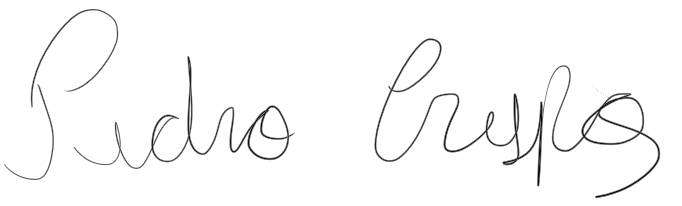 Pedro Crespo